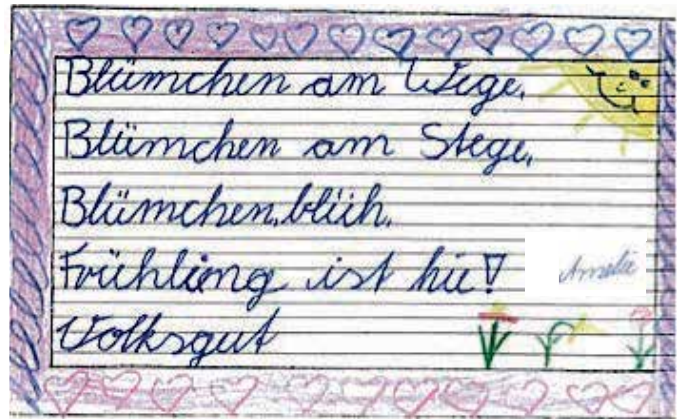 Blümchen am Wege,
Blümchen am Stege,
Blümchen, blüh,
Frühling ist hie!
Amelie
Volksgut